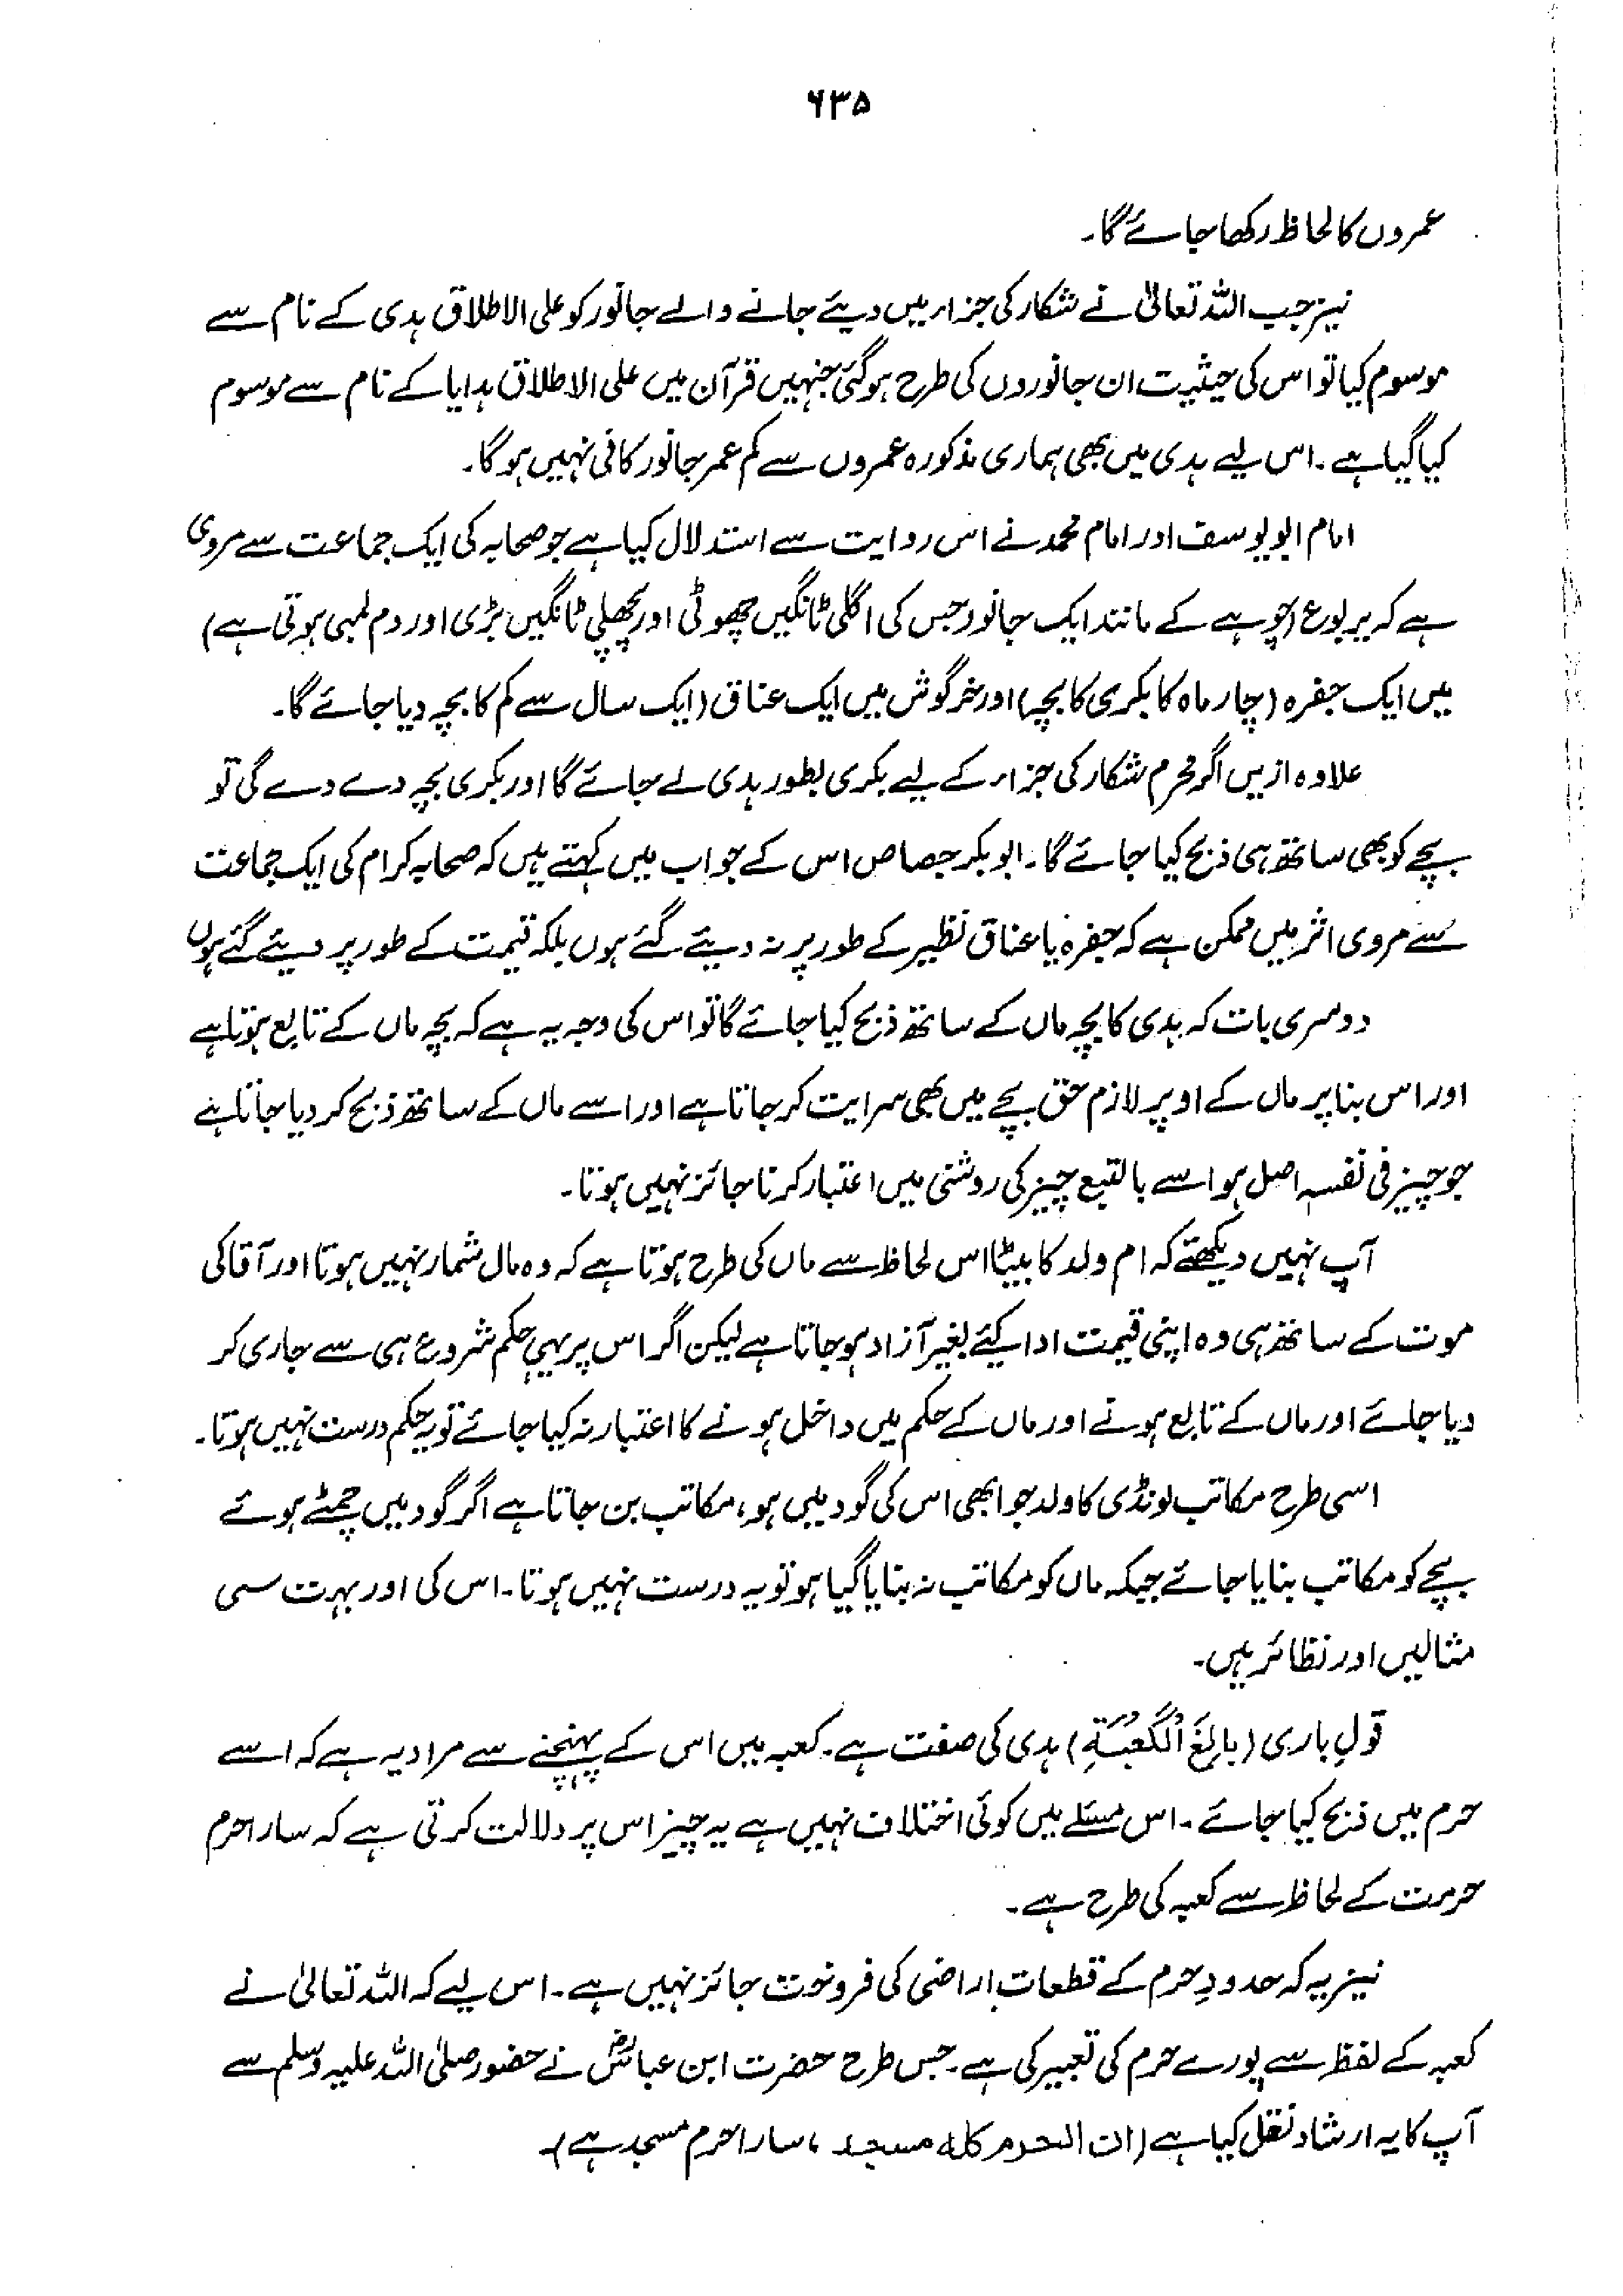 ۶۳۵
عمروں کا لحاظ رکھا جائے گا۔
نیز جب اللہ تعالیٰ نے شکار کی جزاء میں دیئے جانے والے جانور کو علی الاطلاق ہدی کے نام سے
موسوم کیا تو اس کی حیثیت ان جانوروں کی طرح ہوگئی جنہیں قرآن میں علی الاطلاق ہدایا کے نام سے موسوم
کیا گیا ہے۔ اس لیے ہدی میں بھی ہماری مذکورہ عمروں سے کم عمر جانور کافی نہیں ہوگا۔
امام ابو یوسف اور امام محمد نے اس روایت سے استدلال کیا ہے جو صحابہ کی ایک جماعت سے مروی
ہے کہ یربوع (چوہے کے مانند ایک جانور جس کی اگلی ٹانگیں چھوٹی اور پچھلی ٹانگیں بڑی اور دم لمبی ہوتی ہے)
میں ایک جفرہ (چار ماہ کا بکری کا بچہ) اور خرگوش میں ایک عناق (ایک سال سے کم کا بچہ دیا جائے گا۔
علاوہ ازیں اگر محرم شکار کی جزاء کے لیے بکری بطور ہدی لے جائے گا اور بکری بچہ دے دے گی تو
بچے کو بھی ساتھ ہی ذبح کیا جائے گا۔ ابوبکر جصاص اس کے جواب میں کہتے ہیں کہ صحابہ کرام کی ایک جماعت
سے مروی اثر میں ممکن ہے کہ جفرہ یا عناق نظیر کے طور پر نہ دیئے گئے ہوں بلکہ قیمت کے طور پر دیئے گئے ہوں
دوسری بات کہ ہدی کا بچہ ماں کے ساتھ ذبح کیا جائے گا تو اس کی وجہ یہ ہے کہ بچہ ماں کے تابع ہوتا ہے
اور اس بنا پر ماں کے اوپر لازم حق بچے میں بھی سرایت کر جاتا ہے اور اسے ماں کے ساتھ ذبح کر دیا جاتا ہے
جو چیز فی نفسہ اصل ہو اسے بالتبع چیز کی روشنی میں اعتبار کرنا جائز نہیں ہوتا۔
آپ نہیں دیکھتے کہ ام ولد کا بیٹا اس لحاظ سے ماں کی طرح ہوتا ہے کہ وہ مال شمار نہیں ہوتا اور آقا کی
موت کے ساتھ ہی وہ اپنی قیمت ادا کیئے بغیر آزاد ہو جاتا ہے لیکن اگر اس پر یہی حکم شروع ہی سے جاری کر
دیا جائے اور ماں کے تابع ہونے اور ماں کے حکم میں داخل ہونے کا اعتبار نہ کیا جائے تو یہ حکم درست نہیں ہوتا۔
اسی طرح مکاتب لونڈی کا ولد جو ابھی اس کی گود میں ہو، مکاتب بن جاتا ہے اگر گود میں چمٹے ہوئے
بچے کو مکاتب بنایا جائے جبکہ ماں کو مکاتب نہ بنایا گیا ہو تو یہ درست نہیں ہوتا۔ اس کی اور بہت سی
مثالیں اور نظائر ہیں۔
قولِ باری (بَالِغَ الْكَعْبَةِ) ہدی کی صفت ہے۔ کعبہ میں اس کے پہنچنے سے مراد یہ ہے کہ اسے
حرم میں ذبح کیا جائے۔ اس مسئلے میں کوئی اختلاف نہیں ہے یہ چیز اس پر دلالت کرتی ہے کہ سارا حرم
حرمت کے لحاظ سے کعبہ کی طرح ہے۔
نیز یہ کہ حدودِ حرم کے قطعات اراضی کی فروخت جائز نہیں ہے۔ اس لیے کہ اللہ تعالیٰ نے
کعبہ کے لفظ سے پورے حرم کی تعبیر کی ہے۔ جس طرح حضرت ابن عباسؓ نے حضور صلی اللہ علیہ وسلم سے
آپ کا یہ ارشاد نقل کیا ہے (ان الحرم کله مسجد، سارا حرم مسجد ہے)۔